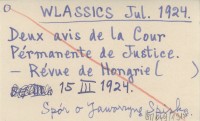 WLASSICS Jul. 1924.
Deux avis de la Cour
Pérmanente de Justice.
– Révue de Hongrie (    )
15 III 1924.
Spór o Jaworzynę